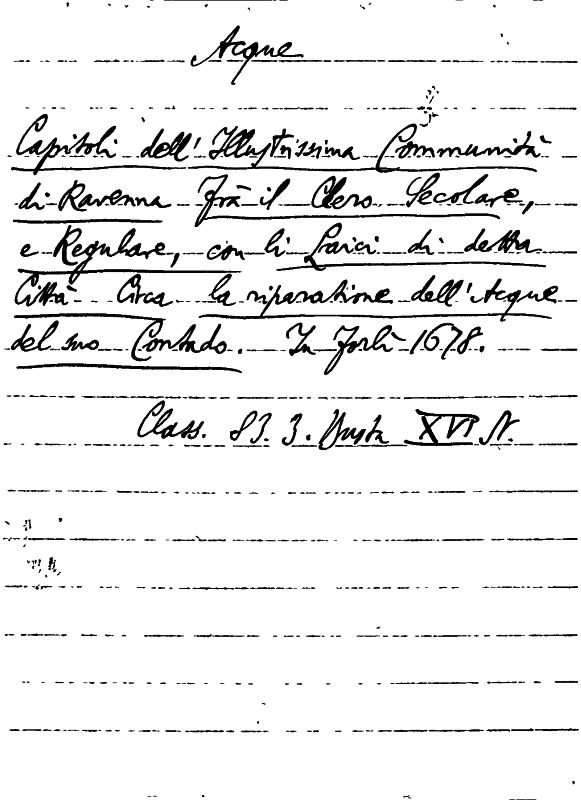 Acque
Capitoli dell' Illustrissima Communità
di Ravenna Frà il Clero Secolare,
e Regulare, con li Laici di detta
Città Circa la riparatione dell'Acque
del suo Contado. In Forlì 1678.
Class. 83. 3. Busta XVI N.